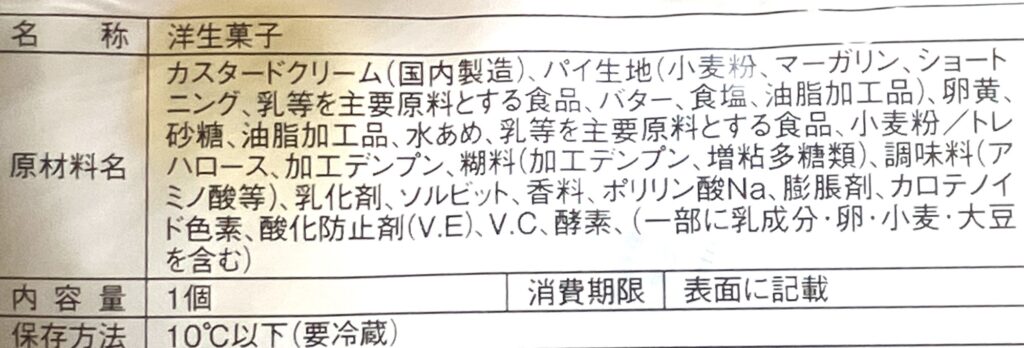 名称 洋生菓子
原材料名 カスタードクリーム(国内製造)、パイ生地(小麦粉、マーガリン、ショート
ニング、乳等を主要原料とする食品、バター、食塩、油脂加工品)、卵黄、
砂糖、油脂加工品、水あめ、乳等を主要原料とする食品、小麦粉/トレ
ハロース、加工デンプン、糊料(加工デンプン、増粘多糖類)、調味料(ア
ミノ酸等)、乳化剤、ソルビット、香料、ポリリン酸Na、膨脹剤、カロテノイ
ド色素、酸化防止剤(V.E)、V.C、酵素、(一部に乳成分・卵・小麦・大豆
を含む)
内容量 1個 消費期限 表面に記載
保存方法 10℃以下(要冷蔵)